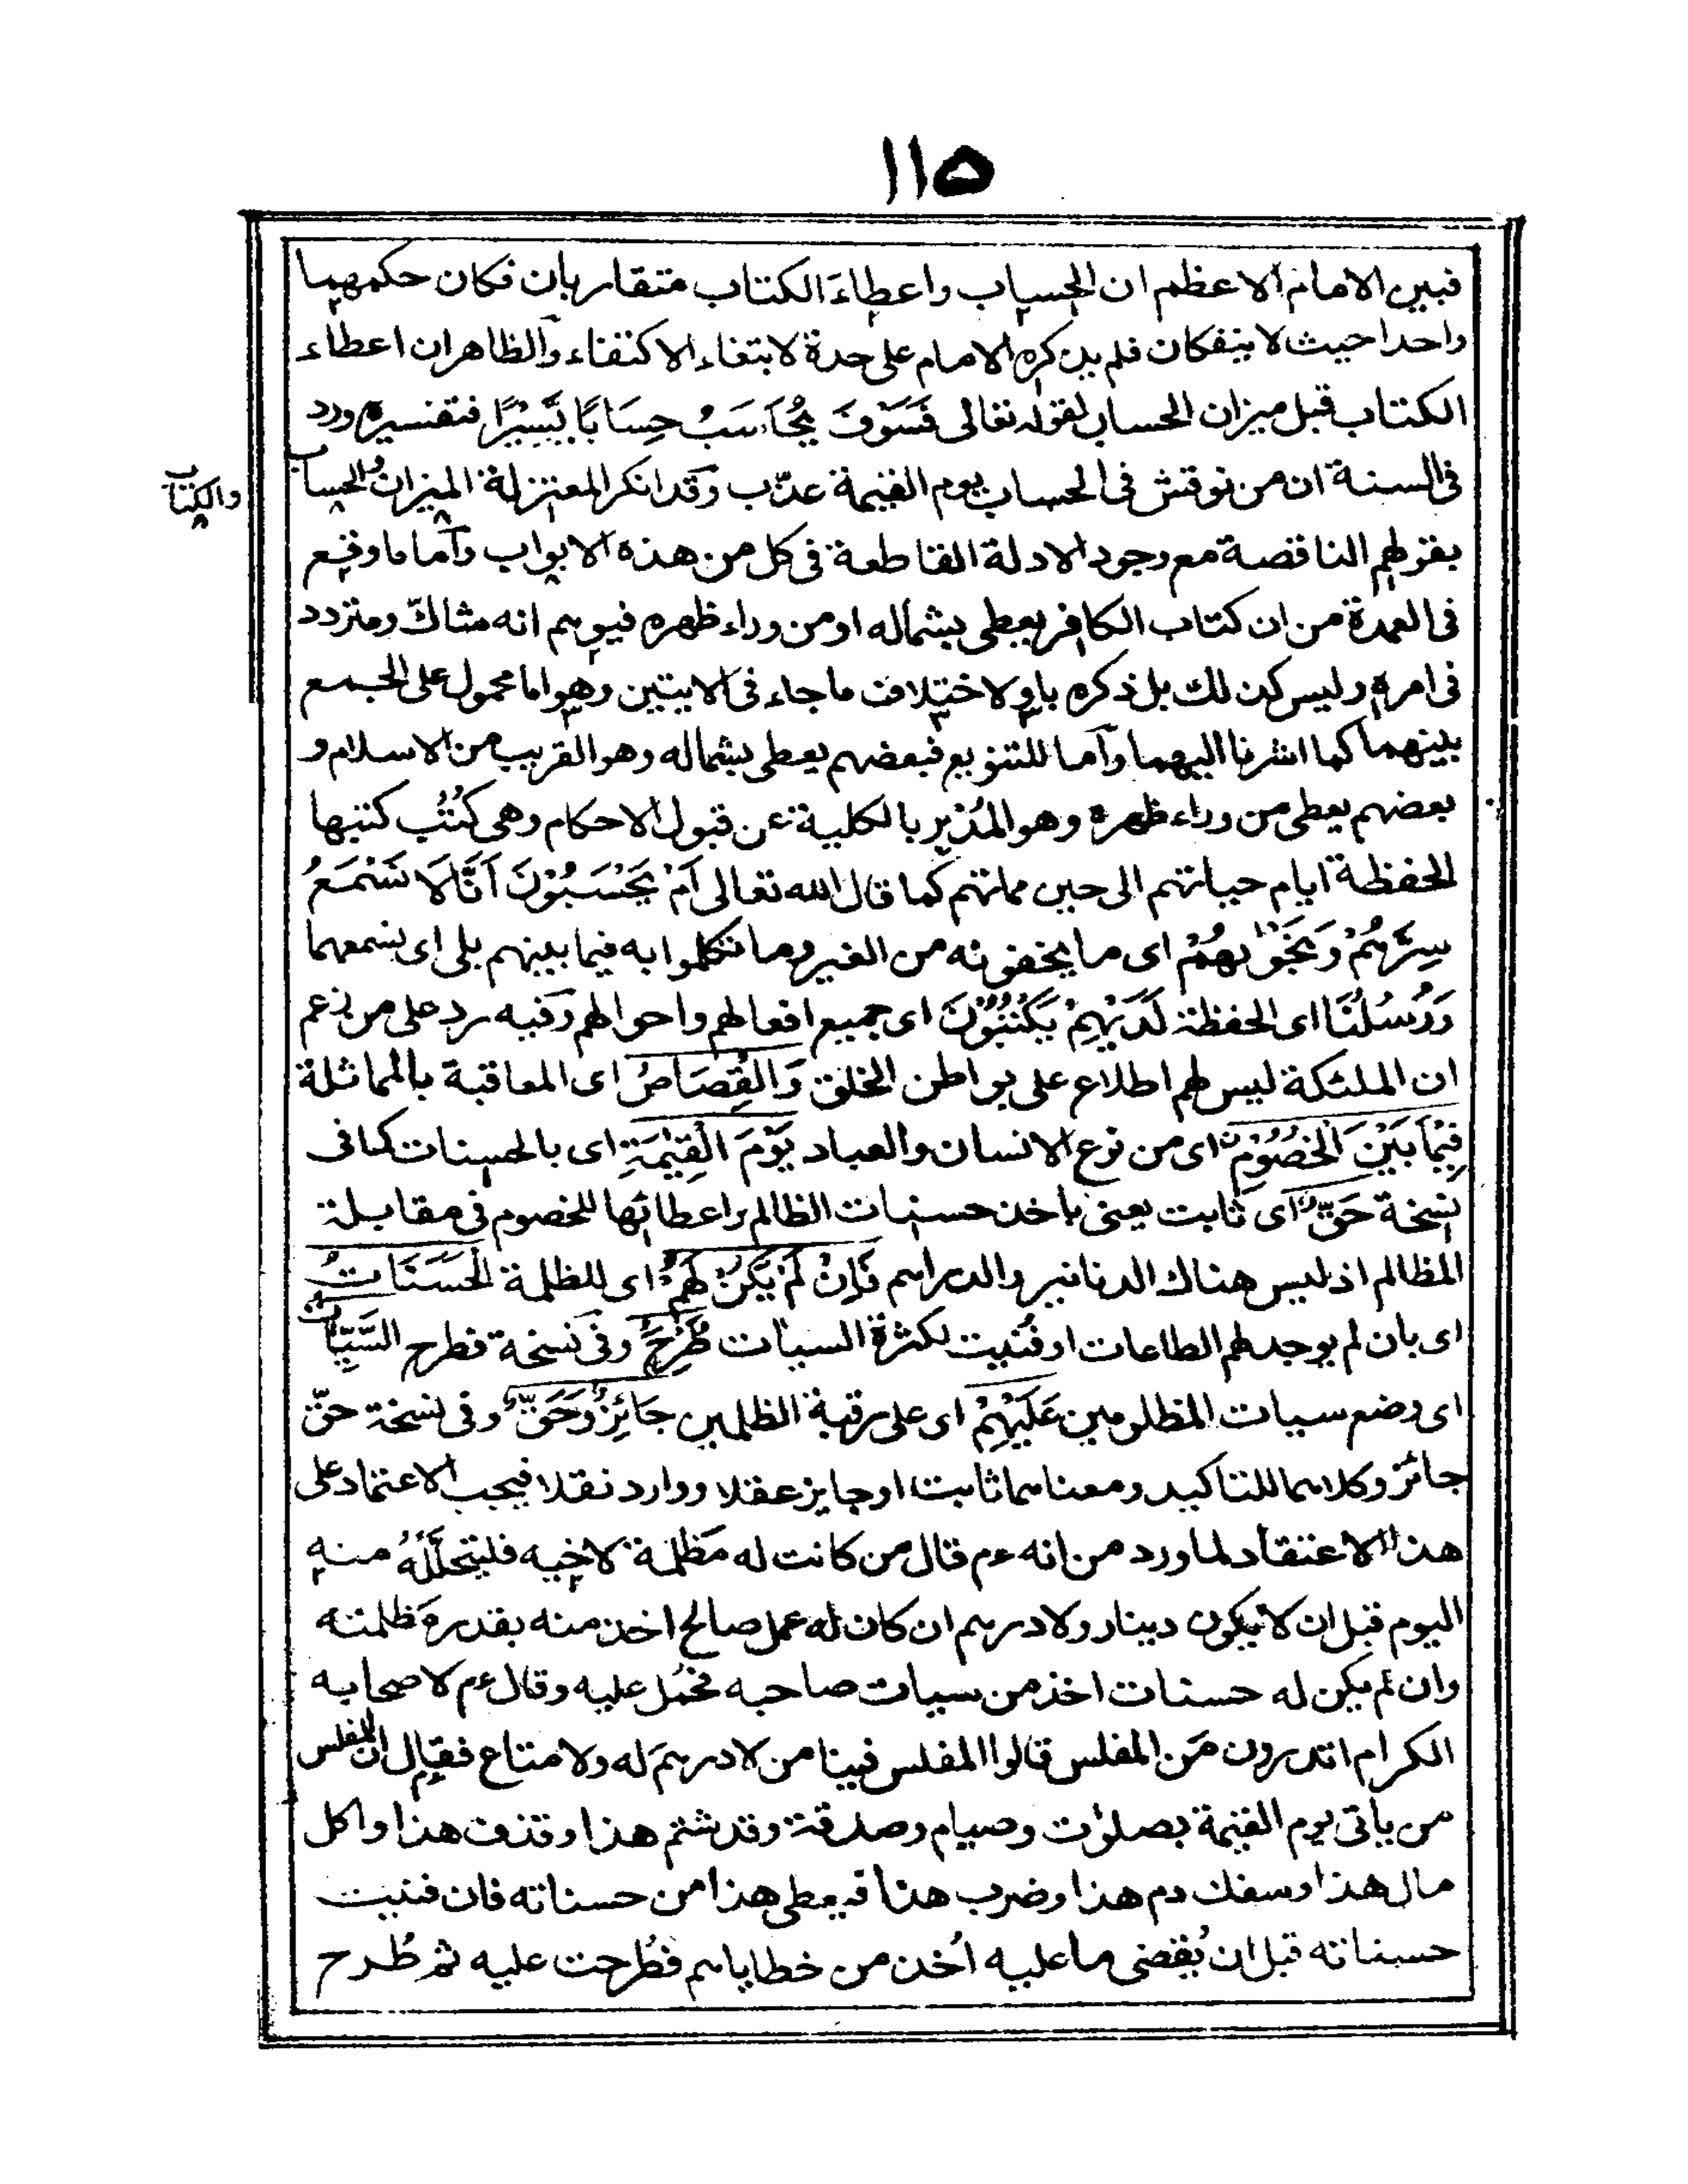 ١١٥
فبين الامام الاعظم ان الحساب واعطاء الكتاب متقاربان فكان حكمهما
واحدا حيث لا ينفكان فلم يذكره الامام على حدة لابتغاء الاكتفاء والظاهر ان اعطاء
الكتاب قبل ميزان الحساب لقوله تعالى فَسَوْفَ يُحَاسَبُ حِسَابًا يَّسِيْرًا فتفسيره ورد
فى السنة ان من نوقش فى الحساب يوم القيمة عذّب وقد انكر المعتزلة الميزان والحساب
والكتاب
بقولهم الناقصة مع وجود الادلة القاطعة فى كل من هذه الابواب وآما ما وقع
فى العمدة من ان كتاب الكافر يعطى بشماله او من وراء ظهره فيوهم انه شاكّ ومتردد
فى امره وليس كذلك بل ذكره باو لاختلاف ما جاء فى الايتين وهو اما محمول على الجمع
بينهما كما اشرنا اليهما وآما للتنويع فبعضهم يعطى بشماله وهو القريب من الاسلام و
بعضهم يعطى من وراء ظهره وهو المُدْبِر بالكلية عن قبول الاحكام وهى كُتُب كتبها
الحفظة ايام حياتهم الى حين مماتهم كما قال الله تعالى اَمْ يَحْسَبُوْنَ اَنَّا لَا نَسْمَعُ
سِرَّهُمْ وَنَجْوٰىهُمْ اى ما يخفونه من الغير وما تكلموا به فيما بينهم بلى اى نسمعهما
وَرُسُلُنَا اى الحفظة لَدَيْهِمْ يَكْتُبُوْنَ اى جميع افعالهم واحوالهم وفيه رد على من زعم
ان الملئكة ليس لهم اطلاع على بواطن الخلق وَالقِصَاصُ اى المعاقبة بالمماثلة
فِيْمَا بَيْنَ الْخُصُوْمِ اى من نوع الانسان والعباد يَوْمَ الْقِيٰمَةِ اى بالحسنات كما فى
نسخة حَقٌّ اى ثابت يعنى باخذ حسنات الظالم واعطائها للخصوم فى مقابلة
المظالم اذ ليس هناك الدنانير والدراهم فَاِنْ لَمْ يَكُنْ لَهُمْ اى للظلمة الْحَسَنَاتُ
اى بان لم يوجد لهم الطاعات او فنيت لكثرة السيات طُرِحَ وفى نسخة فطرح السَّيِّاٰت
اى وضع سيات المظلومين عَلَيْهِمْ اى على رقبة الظلمين جَائِزٌ وَحَقٌّ وفى نسخة حقّ
جائز وكلاهما للتاكيد ومعناهما ثابت او جايز عقلا ووارد نقلا فيجب الاعتماد على
هذا الاعتقاد لما ورد من انه عم قال من كانت له مَظلمة لاخيه فليتحلّلهُ منه
اليوم قبل ان لا يكون دينار ولا درهم ان كان له عمل صالح اخذ منه بقدر مَظلمته
وان لم يكن له حسنات اخذ من سيات صاحبه فحُمل عليه وقال عم لاصحابه
الكرام اتدرون مَن المفلس قالوا المفلس فينا من لا درهمَ له ولا متاع فقال ان المفلس
من ياتى يوم القيمة بصلوٰت وصيام وصدقة وقد شتم هذا وقذف هذا واكل
مال هذا وسفك دم هذا وضرب هذا فيعطى هذا من حسناته فان فنيت
حسناته قبل ان يُقضى ما عليه اُخذ من خطاياهم فطُرحت عليه ثم طُرح